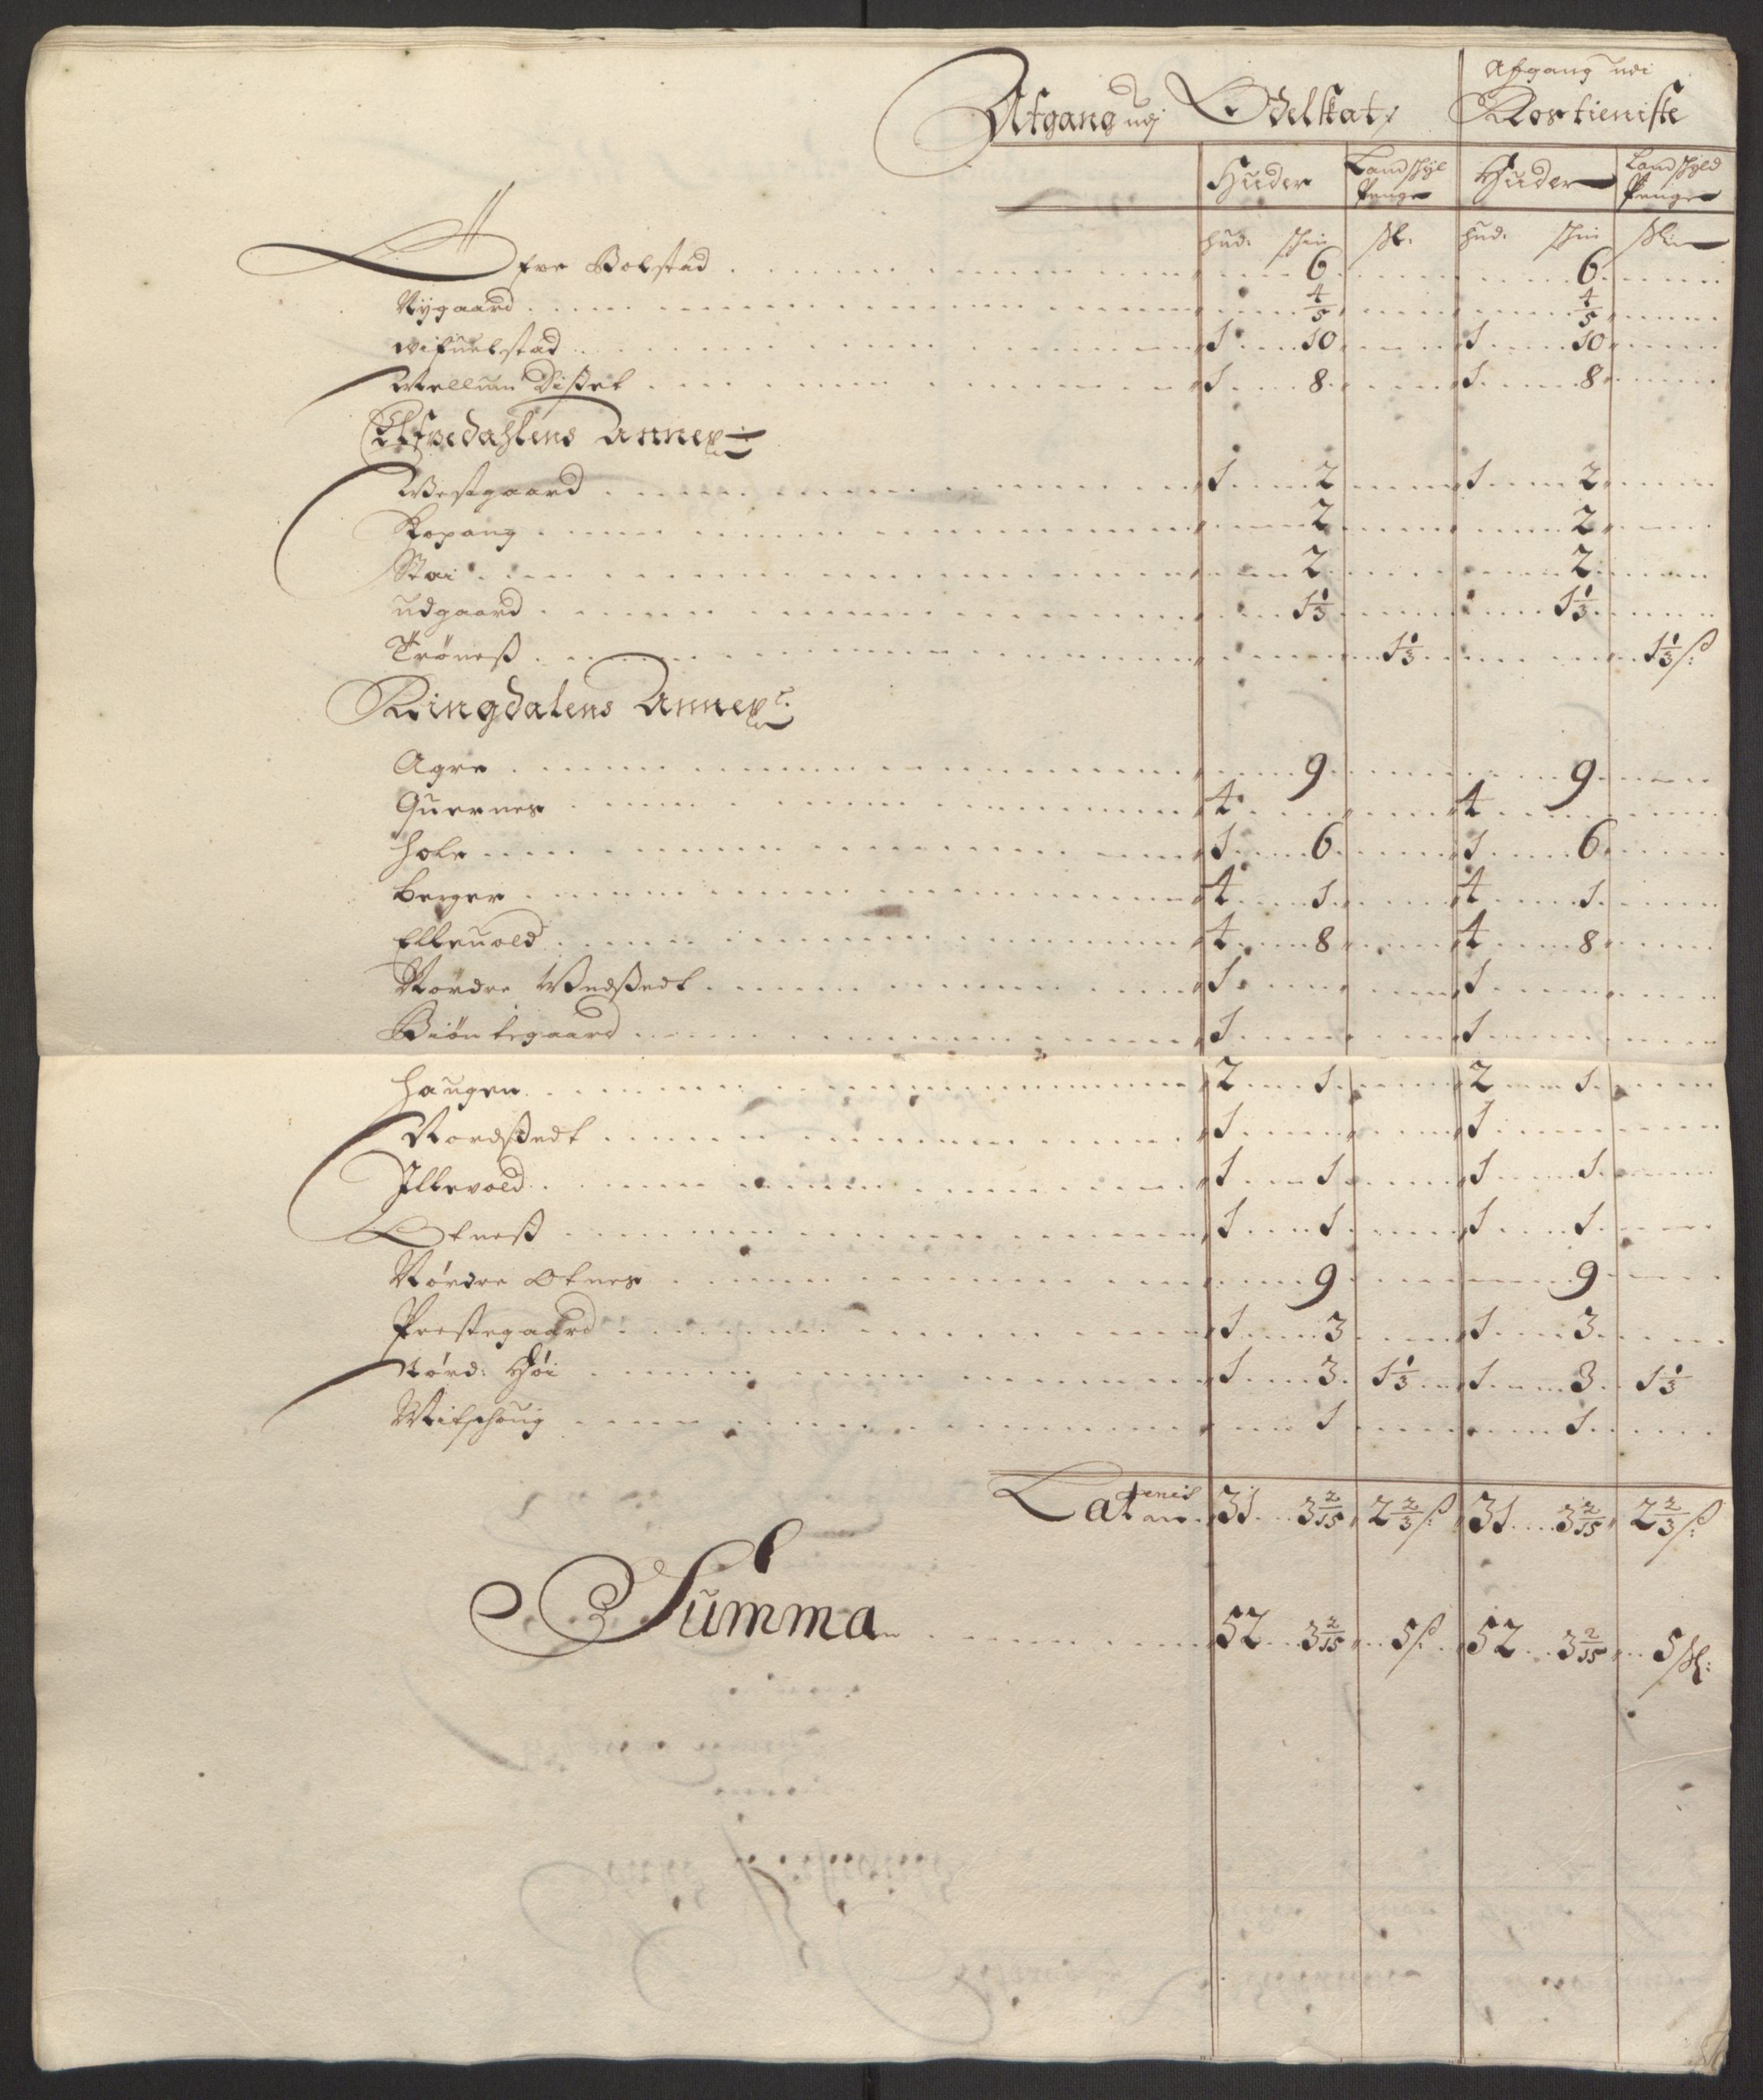 Afgang udj Odelskat / Afgang udi Rostieniste
Huder Landschyl Penge Huder Landschyld Penge
hud: schin ßk: hud: schin skin
Øfre Bolstad 6 6
Nygaard 4/5 4/5
Wifuelstad 1 10 1 10
Mellum Dißet 1 8 1 8
Elfvedahlens Annex
Westgaard 1 2 1 2
Kopang 2 2
Stai 2 2
udgaard 1 1/3 1 1/3
Trøneß 1 1/3 1 1/3 ß:
Ringdalens Annex
Agre 9 9
Quernes 4 4
Hole 1 6 1 6
Berger 4 1 4 1
Elleuold 4 8 4 8
Nordre Wedßedt 1 1
Biørntegaard 1 1
Haugen 2 1 2 1
Nordßedt 1 1
Illevold 1 1 1 1
Otneß 1 1 1 1
Nørdre Otnes 9 9
Prestegaard 1 3 1 3
Nørd: Høi 1 3 1 1/3 1 3 1 1/3
Witschoug 1 1
Lateris 31 3 2/15 2 2/3 ß: 31 3 2/15 2 2/3 ß:
Summa 52 3 2/15 5 ß: 52 3 2/15 5 ßk: